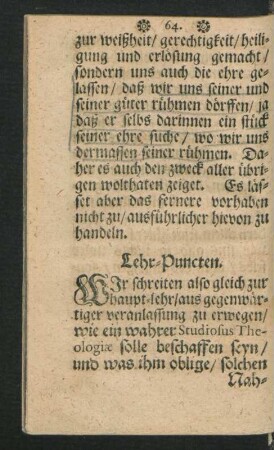 64.
zur weißheit/ gerechtigkeit/ heili-
gung und erlösung gemacht/
sondern uns auch die ehre ge-
lassen/ daß wir uns seiner und
seiner güter rühmen dörffen/ ja
daß er selbs darinnen ein stück
seiner ehre suche/ wo wir uns
dermassen seiner rühmen. Da-
her es auch den zweck aller übri-
gen wolthaten zeiget. Es läs-
set aber das fernere vorhaben
nicht zu/ ausführlicher hievon zu
handeln.
Lehr-Puncten.
WIr schreiten also gleich zur
haupt-lehr/ aus gegenwär-
tiger veranlassung zu erwegen/
wie ein wahrer Studiosus The-
ologiæ solle beschaffen seyn/
und was ihm oblige/ solchen
Nah-